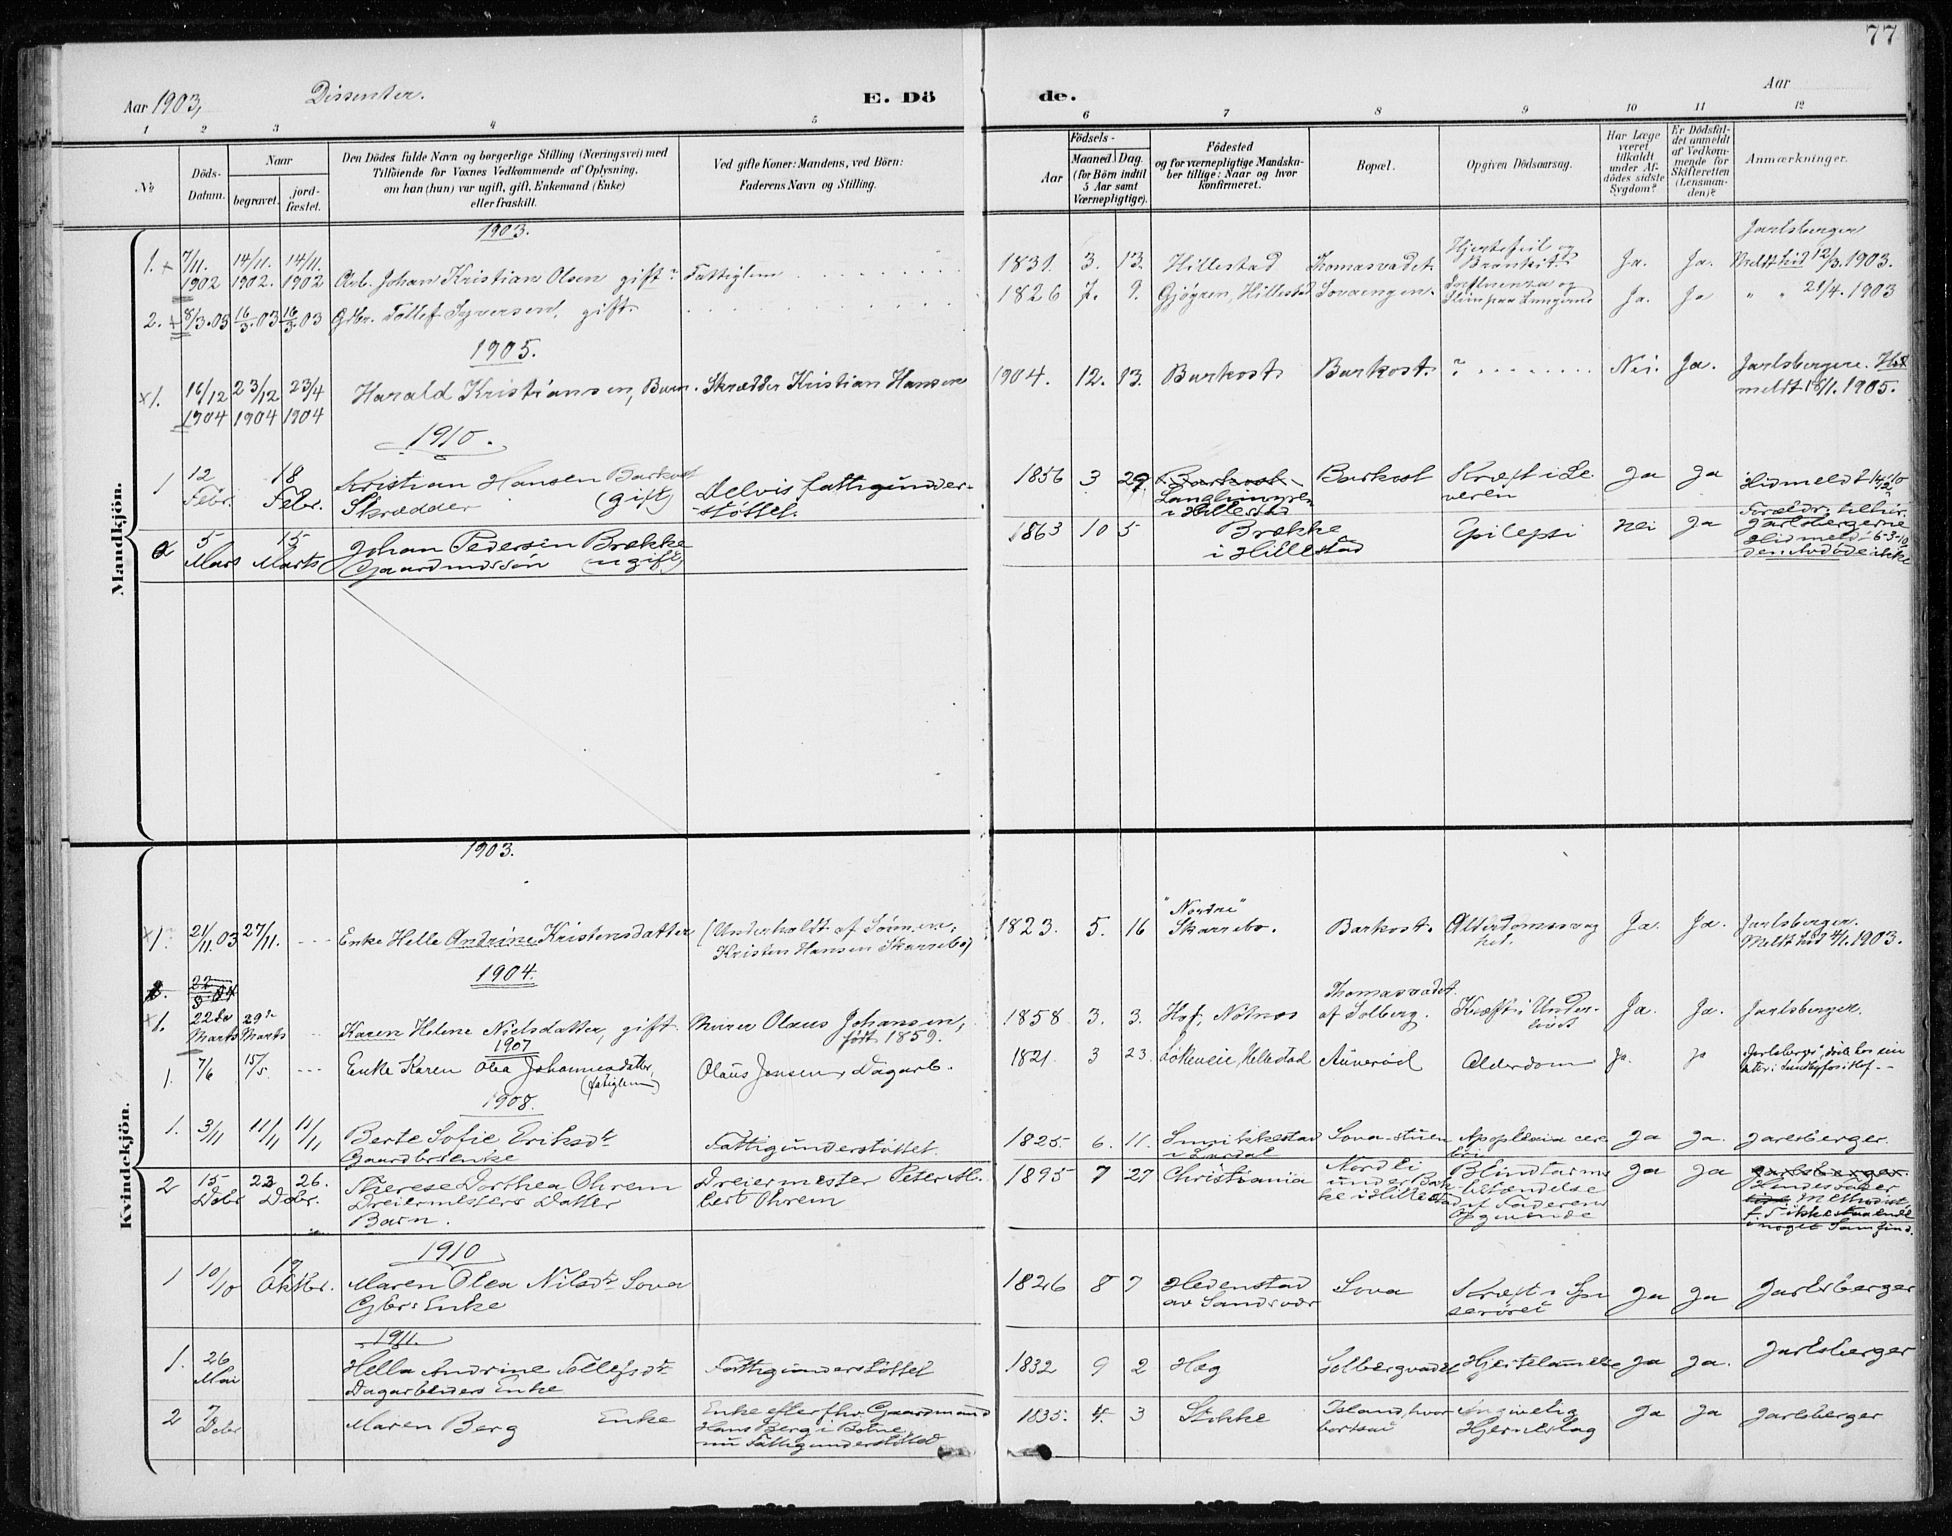 77
Aar 1903, Dissenter. E. Dö de. Aar
1 2 3 4 5 6 7 8 9 10 11 12
№
Döds-Datum.
Naar
begravet.
jord-fæstet.
Den Dödes fulde Navn og borgerlige Stilling (Næringsvei) med
Tilföiende for Voxnes Vedkommende af Oplysning,
om han (hun) var ugift, gift, Enkemand (Enke)
eller fraskilt.
Ved gifte Koner: Mandens, ved Börn:
Faderens Navn og Stilling.
Födsels-
Aar
Maaned Dag
(for Börn indtil
5 Aar samt
Værnepligtige).
Födested
og for værnepligtige Mandskaber tillige: Naar og hvor
konfirmeret.
Bopæl.
Opgiven Dödsaarsag.
Har Læge
været
tilkaldt
under Afdödes sidste
Sygdom?
Er Dödsfaldet anmeldt
af Vedkommende for
Skifteretten
(Lensmanden)?
Anmærkninger.
Mandkjön.
1903.
1. + 7/11. 1902 14/11. 1902. 14/11. 1902 Arb. Johan Kristian Olsen gift. Fattiglem 1831. 3. 13. Hillestad Thomasvadet. Hjertefeil og Bronkit. Ja. Ja. Jarlsberger Meldt hid 12/3. 1903.
2. + 8/3.03 16/3.03 16/3.03 Gdbr. Tollef Syversen, gift. 1826 7. 9. Gjögren, Hillestad Sovaengen. Influenza og Slim paa Lungerne Ja. Ja " " 21/4. 1903
1905.
x1. 16/12 1904 23/12 1904 23/4 1904 Harald Kristiansen, Barn. Skrædder Kristian Hansen 1904. 12. 13. Barkost. Barkost. ? Nei. Ja. Jarlsbergere. Hid meldt 1905.
1910.
1 12 Febr. 18 Febr. Kristian Hansen Barkost Skrædder (gift) Delvis fattigunder-støttet. 1856 3 29 Barkost i Hillestad Barkost Kræft i Leveren Ja Ja Hidmeldt
2 5 Mars 15 Marts Johan Pedersen Brække Gaardmdssön (ugift) 1863 10 5 Brække i Hillestad Epilepsi Nei Ja Forældr. tilhør. Jarlsbergerne Hidmeldt 6-3-10 den Avdøde ikke
Kvindekjön.
1903.
x1. 21/11 03 27/11. Enke Helle Andrine Kristensdatter (Underholdt af Sønnen, Kristen Hansen Skarrebo) 1823. 5. 16 "Nordre" Skarrebo. Barkost. Alderdomssvaghet. Ja. Ja. Jarlsberger. Meldt hid 1903.
1904.
22/3 04
x1. 22de Marts 29de Marts Karen Helene Nielsdatter, gift Murer Olaus Johansen, født 1859. 1858 3. 3. Hof, Nötnes Thomasvadet af Solberg. Kræft i Underlivet Ja. Ja. Jarlsberger.
1907
1. 7/6 15/5 Enke Karen Olea Johannesdatter, (Fattiglem) Olaus Jensen, Dagarb. 1821. 3 23. Løkeneie, Hillestad Aunerød Alderdom Ja. Ja Jarlsberger, døde hos sin
1908.
1. 3/11 11/11 11/11 Berte Sofie Eriksdtr Gaardbrsenke Fattigunderstøttet. 1825. 6. 11. i Lardal Sova-stuen Apoplexia cerebri Ja Ja. Jarlsberger.
2 15 Debr 23 26. Debr. Therese Dorthea Ohrem Dreiermesters Datter Barn. Dreiermester Peter Albert Ohrem 1895 7 27 Christiania Nordli under Bakke i Hillestad Blindtarmsbetændelse Faderens Opgivende Ja Ja Jarlsberger. Hendes Fader Methodist, f. T. ikke staaende i noget Samfund.
1910
1 10/10 19 Oktbr. Maren Olea Nilsdtr Sova Gbrs Enke 1826 8 7 Hedenstad av Sandsvær Sova Kræft i Spiserøret Ja Ja Jarlsberger
1911.
1. 26 Mai Hella Andrine Tollefsdtr Dagarbeiders Enke Fattigunderstøttet 1832 9 2 Høg Solbergvadet Hjertelammelse Ja Ja. Jarlsberger
2 7 Debr Maren Berg Enke Enke efter fhv. Gaardmand Hans Berg i Botne nu Fattigunderstøttet 1835. 4. 3 Stokke Island, hvor bortsat Angivelig Hjerneslag Ja Ja Jarlsberger